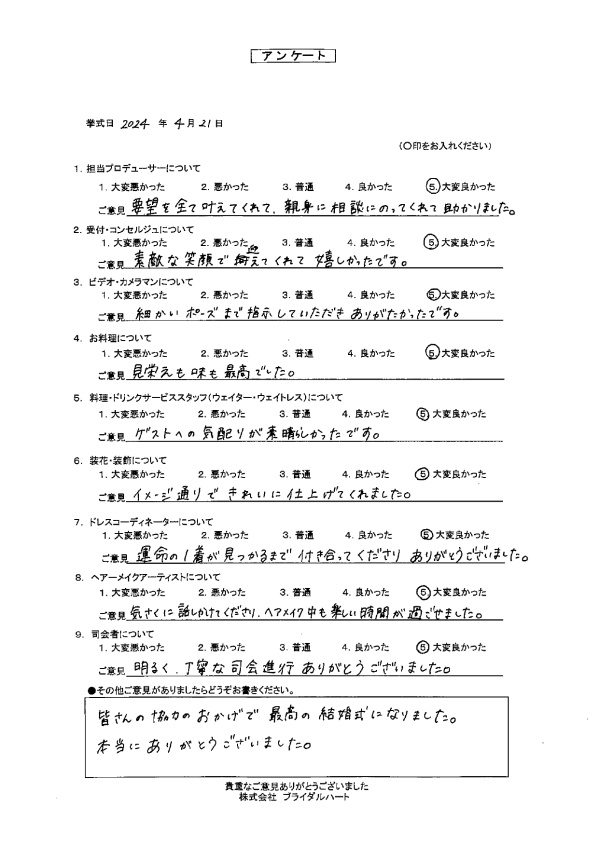 アンケート
挙式日 2024 年 4月21日
(○印をお入れください)
1. 担当プロデューサーについて
1. 大変悪かった 2. 悪かった 3. 普通 4. 良かった 5. 大変良かった
ご意見 要望を全て叶えてくれて、親身に相談にのってくれて助かりました。
2. 受付・コンセルジュについて
1. 大変悪かった 2. 悪かった 3. 普通 4. 良かった 5. 大変良かった
ご意見 素敵な笑顔で迎えてくれて嬉しかったです。
3. ビデオ・カメラマンについて
1. 大変悪かった 2. 悪かった 3. 普通 4. 良かった 5. 大変良かった
ご意見 細かいポーズまで指示していただきありがたかったです。
4. お料理について
1. 大変悪かった 2. 悪かった 3. 普通 4. 良かった 5. 大変良かった
ご意見 見栄えも味も最高でした。
5. 料理・ドリンクサービススタッフ(ウェイター・ウェイトレス)について
1. 大変悪かった 2. 悪かった 3. 普通 4. 良かった 5. 大変良かった
ご意見 ゲストへの気配りが素晴らしかったです。
6. 装花・装飾について
1. 大変悪かった 2. 悪かった 3. 普通 4. 良かった 5. 大変良かった
ご意見 イメージ通りできれいに仕上げてくれました。
7. ドレスコーディネーターについて
1. 大変悪かった 2. 悪かった 3. 普通 4. 良かった 5. 大変良かった
ご意見 運命の1着が見つかるまで付き合ってくださりありがとうございました。
8. ヘアーメイクアーティストについて
1. 大変悪かった 2. 悪かった 3. 普通 4. 良かった 5. 大変良かった
ご意見 気さくに話しかけてくださり、ヘアメイク中も楽しい時間が過ごせました。
9. 司会者について
1. 大変悪かった 2. 悪かった 3. 普通 4. 良かった 5. 大変良かった
ご意見 明るく、丁寧な司会進行ありがとうございました。
●その他ご意見がありましたらどうぞお書きください。
皆さんの協力のおかげで最高の結婚式になりました。
本当にありがとうございました。
貴重なご意見ありがとうございました
株式会社 ブライダルハート